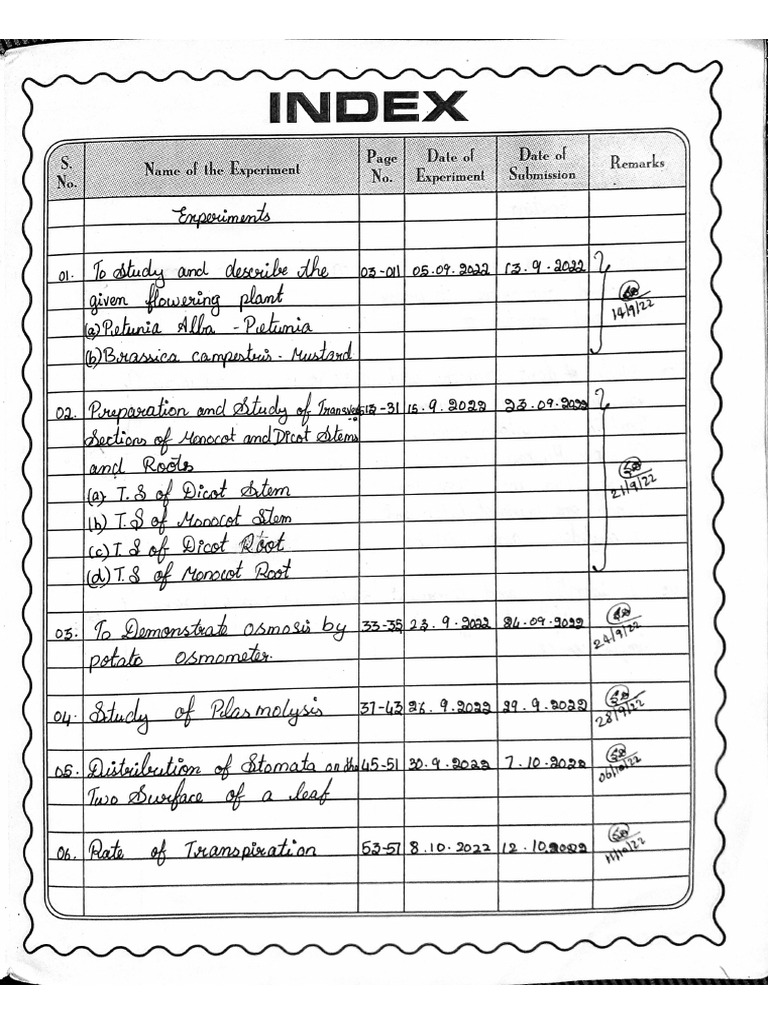 INDEX
S. No. Name of the Experiment Page No. Date of Experiment Date of Submission Remarks
Experiments
01. To Study and describe the 03-011 05.09.2022 13.9.2022
given flowering plant 14/9/22
(a) Petunia Alba - Petunia
(b) Brassica campestris - Mustard
02. Preparation and Study of Transverse 13-31 15.9.2022 23.09.2022
Sections of Monocot and Dicot Stems
and Roots
(a) T.S of Dicot Stem 21/9/22
(b) T.S of Monocot Stem
(c) T.S of Dicot Root
(d) T.S of Monocot Root
03. To Demonstrate osmosis by 33-35 23.9.2022 24.09.2022
potato osmometer. 24/9/22
04. Study of Plasmolysis 37-43 26.9.2022 29.9.2022 28/9/22
05. Distribution of Stomata on the 45-51 30.9.2022 7.10.2022 06/10/22
Two Surface of a leaf
06. Rate of Transpiration 53-57 8.10.2022 12.10.2022 11/10/22